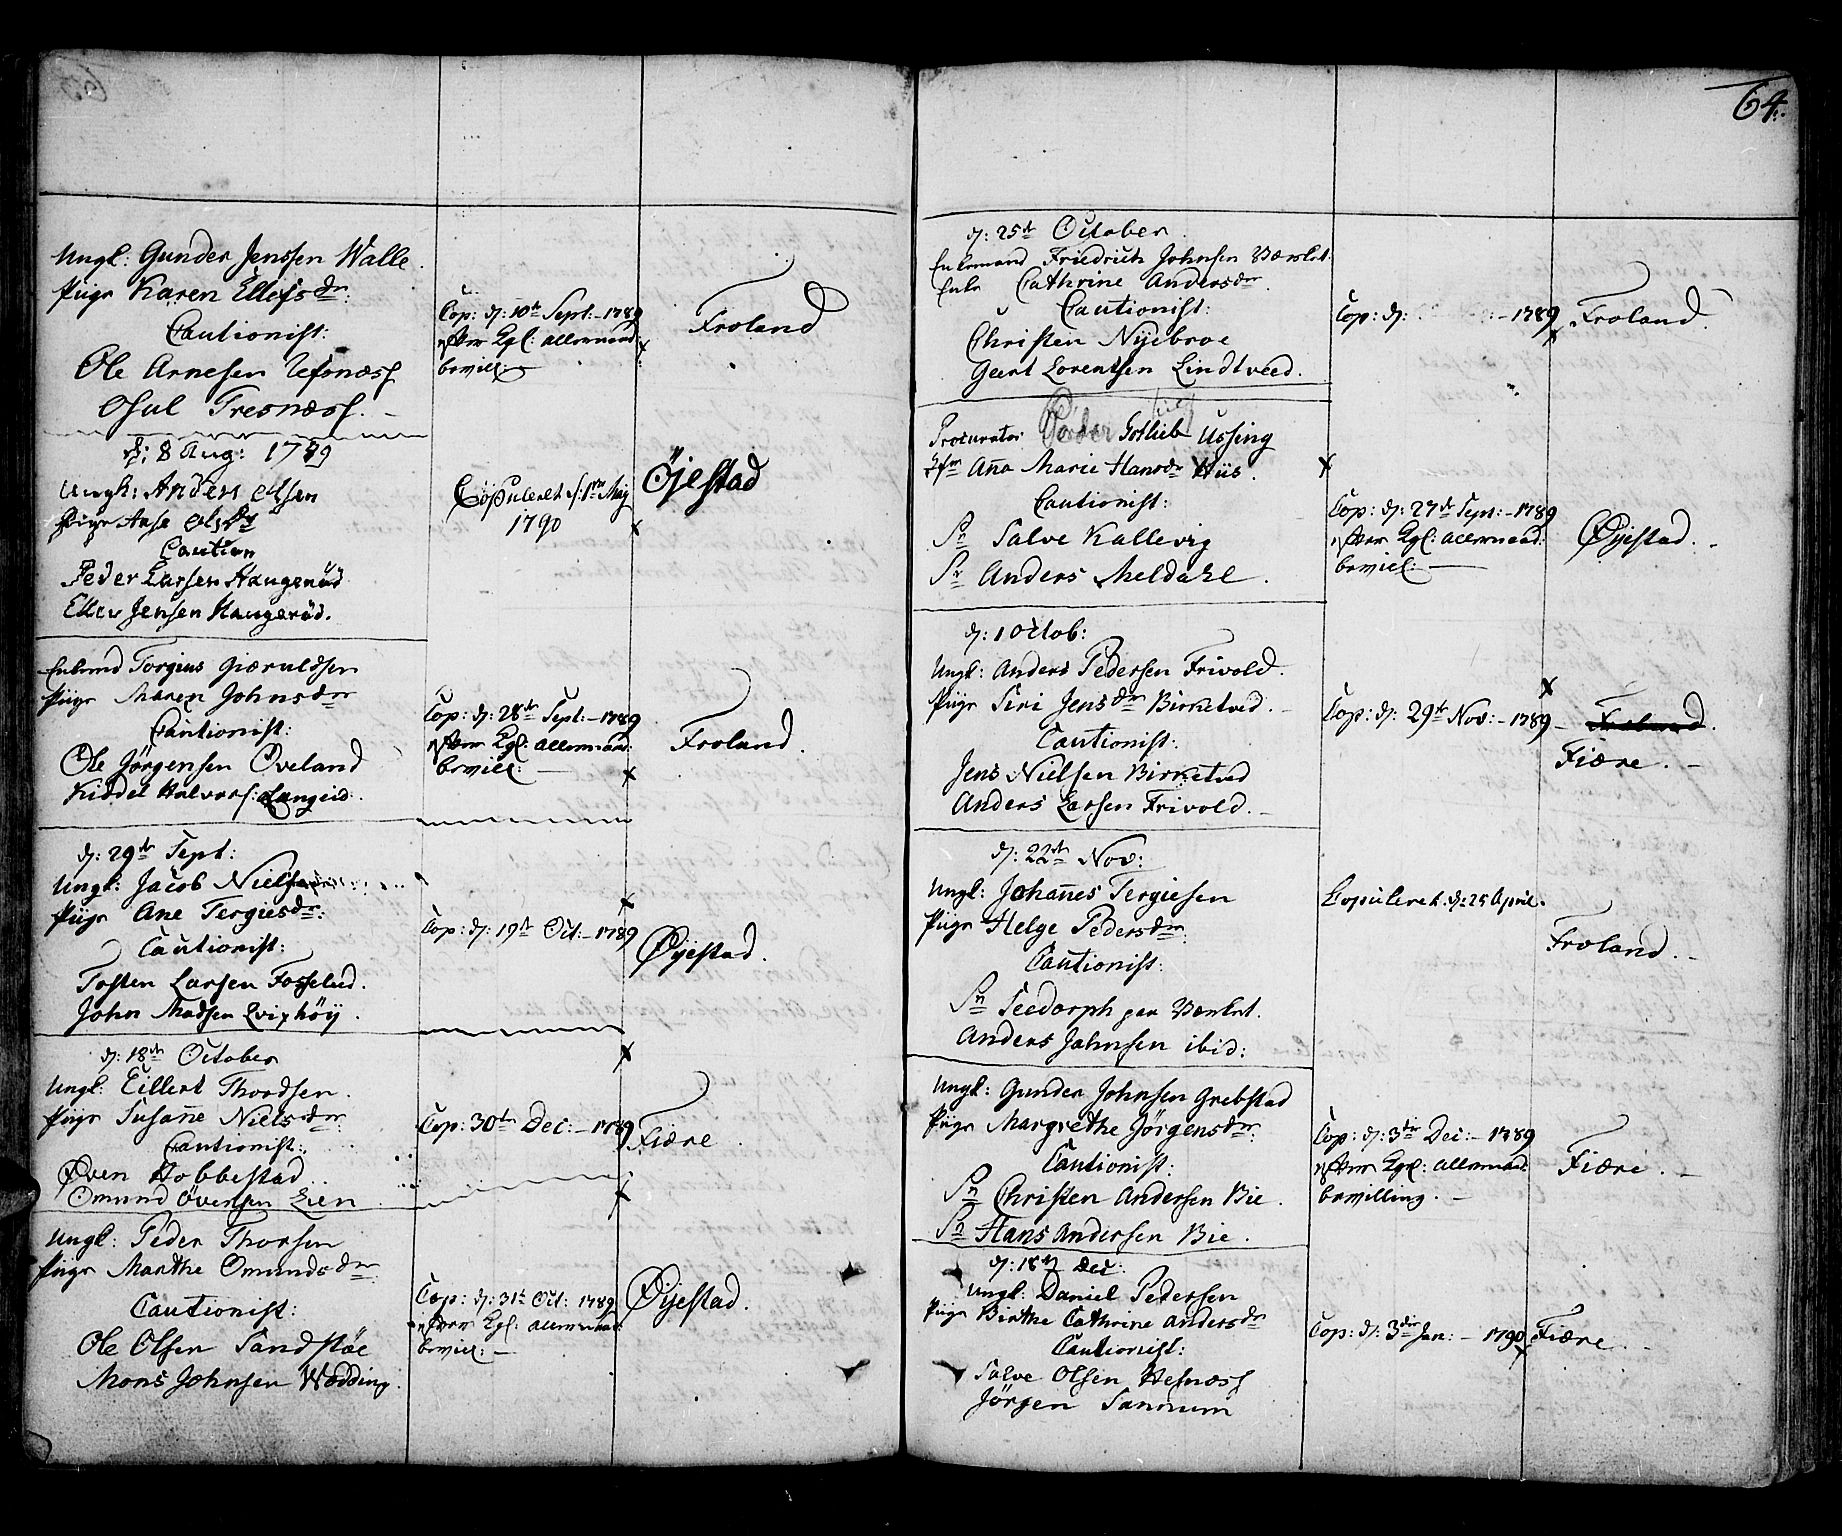 64.
Ungl: Gunder Jenssen Walle.
Piige Karen Ellefsdr:
Cautionist:
Ole Arnesen Refsnæss
Osul Tresnæss.
Cop: d: 10de Sept: 1789
efter Kgl: allernaad:
bevill:
Froland
d: 8 Aug: 1789
Ungk: Anders Olsen
Piige Anse
Caution
Peder Larsen Haugerød
Ellev Jensen Haugerød.
Copuleret d: 1 May
1790
Øjestad
Enkemd Torgius Giæruldsen
Piige Maren Johnsdr
Cautionist:
Ole Jørgensen Øveland
Kiddel Halvors: Langeid.
Cop: d: 28de Sept: 1789
efter Kgl: allernaad:
bevill:
Froland.
d: 29de Sept:
Ungl: Jacob Nielsen
Piige Ane Tergiesdr:
Cautionist:
Tosten Larsen Fosselud.
John Madsen Qvixhöy.
Cop: d: 19de Oct: 1789
Øyestad.
d: 18de October
Ungl: Eillert Thordsen.
Piige Susane Nielsdr:
Cautionist:
Øven Hobbestad
Omund Øvensen Lien
Cop: 30de Dec: 1789
Fiære.
Ungl: Peder Thorsen
Piige Marthe Omundsdr
Cautionist:
Ole Olsen Sandstøe
Mons Johnsen Wædding.
Cop: d: 31te Oct: 1789
efter Kgl: allernaad:
bevill:
Øyestad.
d: 25de October.
Enkemand Friedrich Johnsen Værket.
Enke Cathrine Andersdr.
Cautionist:
Christen Nyebroe
Geert Lorentsen Lindtveed.
Cop: d: 1789
Froland.
Procurator Peder Gotlieb Ussing
Jfr Ana Marie Hansdr Hiis.
Cautionist:
Sr Salve Kallevig
Sr Anders Meldahl.
Cop: d: 27de Sept: 1789
efter Kgl: allernaad:
bevill:
Øyestad.
d: 1 Octob:
Ungl: Anders Pedersen Frivold.
Piige Siri Jensdr Birketved.
Cautionist:
Jens Nielsen Birketved
Anders Larsen Frivold.
Cop: d: 29de Nov: 1789
Froland.
Fiære.
d: 22de Nov:
Ungl: Johanes Tergiesen
Piige Helge Pedersdr:
Cautionist:
Sr Seedorph paa Værket.
Anders Johnsen ibid:
Copuleret d: 25 April.
Froland.
Ungl: Gunder Johnsen Grebstad
Piige Margrethe Jørgensdr:
Cautionist:
Sr Christen Andersen Bie.
Sr Hans Andersen Bie.
Cop: d: 3die Dec: 1789
efter Kgl: allernaad:
bevilling.
Fiære.
d: 18de Dec:
Ungl: Daniel Pedersen
Piige Birthe Cathrine Andersdr
Cautionist:
Salve Olsen Hesnæss
Jörgen Sannum
Cop: d: 3die Jan: 1790
Fiære.